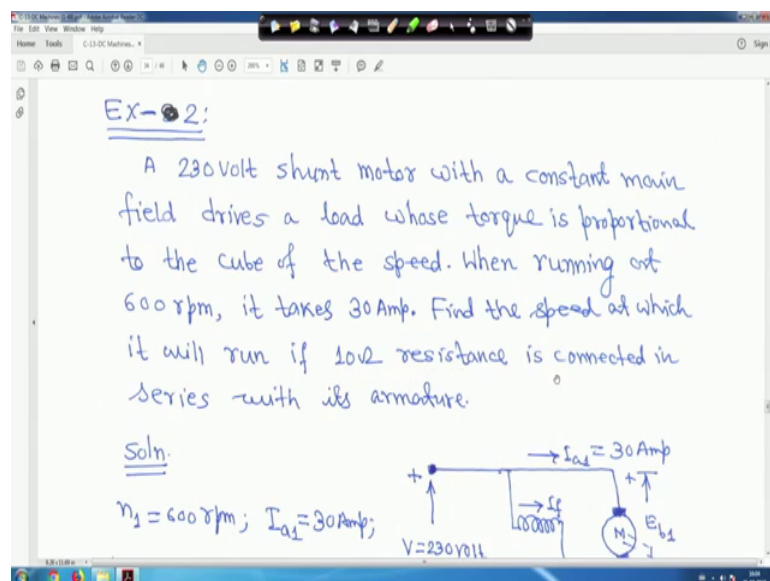 C-13-DC Machines (1-48).pdf - Adobe Acrobat Reader DC
File Edit View Window Help
Home Tools C-13-DC Machines... × Sign
200%
EX-2:
A 230 volt shunt motor with a constant main
field drives a load whose torque is proportional
to the cube of the speed. When running at
600 rpm, it takes 30 Amp. Find the speed at which
it will run if 10Ω resistance is connected in
series with its armature.
Soln.
→ Ia1 = 30 Amp
+ +
n1 = 600 rpm; Ia1 = 30 Amp;
→ If
M
Eb1
V = 230 volt